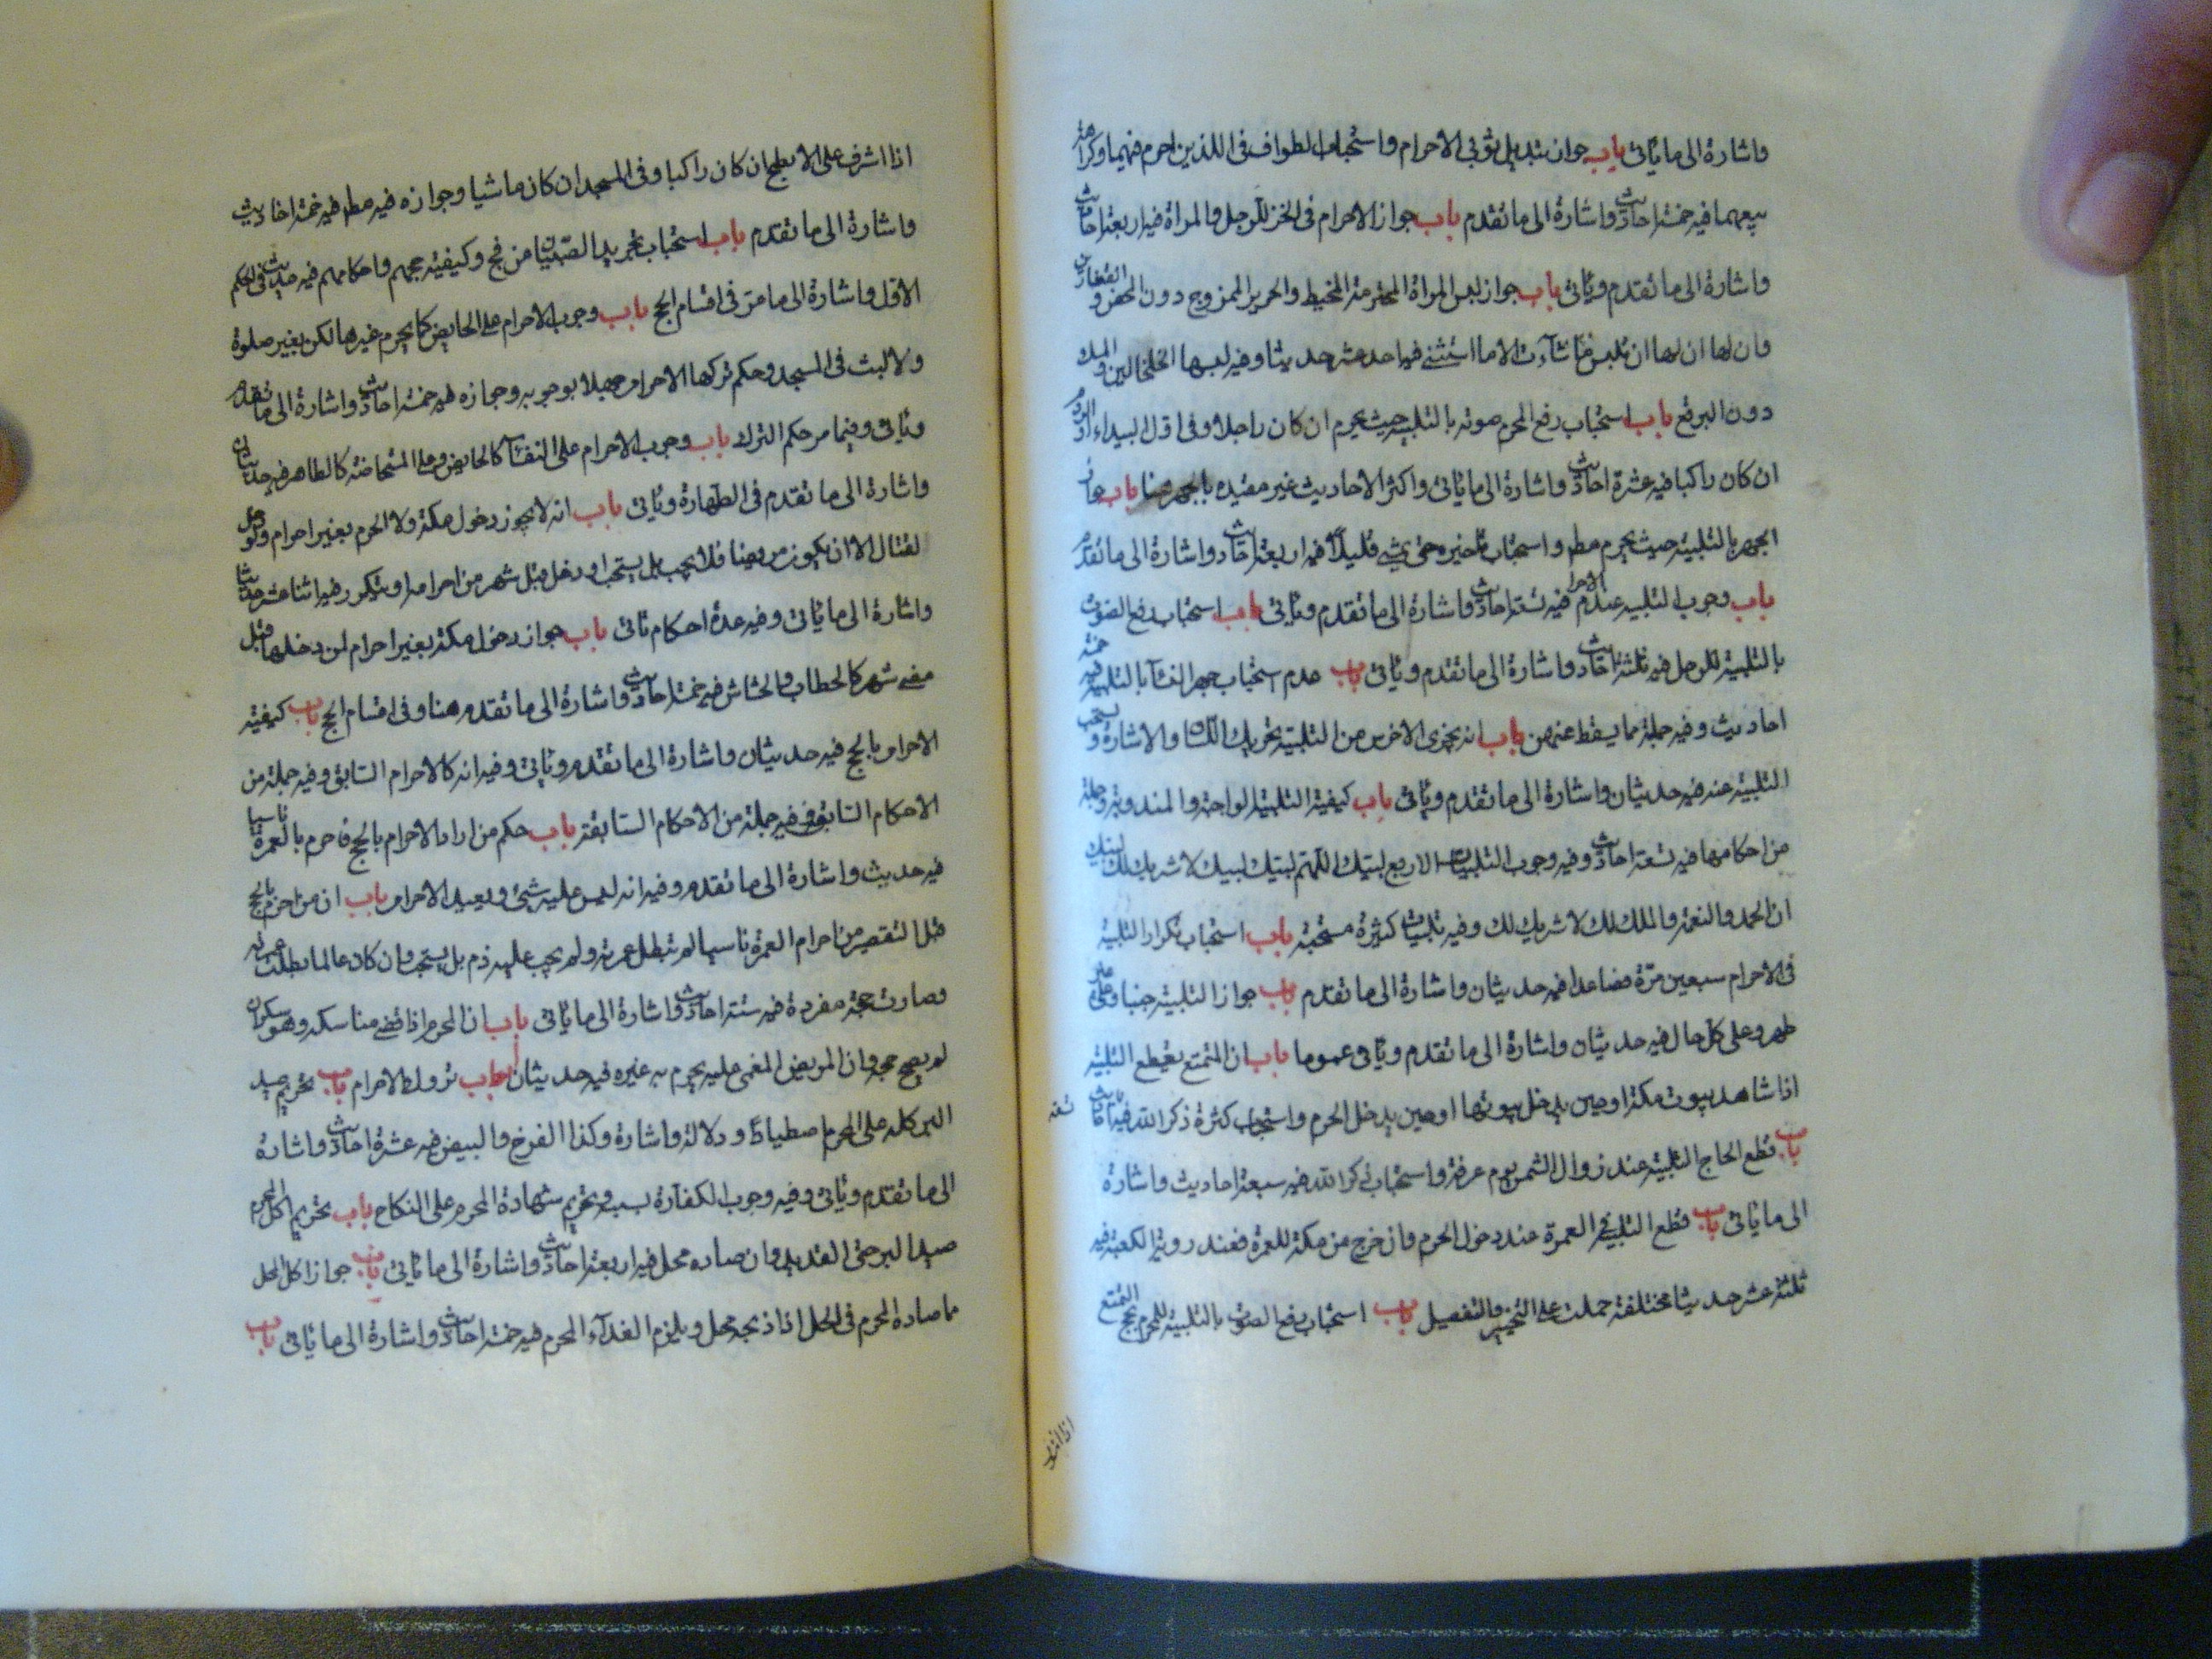 واشارة الى ما ياتى باب جواز تبديل ثوبى الاحرام واستحباب الطواف فى اللذين احرم فيهما وكراهة
بيعهما فيه خمسة احاديث واشارة الى ما تقدم باب جواز الاحرام فى الخز للرجل والمراة فيه اربعة احاديث
واشارة الى ما تقدم وياتى باب جواز لبس المراة المحرمة المخيط والحرير الممزوج دون المحض والقفازين
وان لها ان تلبس ما شآءت الا ما استثنى فيه احد عشر حديثا وفيه لبسها الخلخالين والمسك
دون البرقع باب استحباب رفع المحرم صوته بالتلبية حيث يحرم ان كان راجلا وفى اول البيداء او الردم
ان كان راكبا فيه عشرة احاديث واشارة الى ما ياتى واكثر الاحاديث غير مقيده بالجهر هنا باب جواز
الجهر بالتلبية حيث يحرم مطر واستحباب تاخيره حتى يمشى قليلا فيه اربعة احاديث واشارة الى ما تقدم
باب وجوب التلبيه عند الاحرام فيه تسعة احاديث واشارة الى ما تقدم وياتى باب استحباب رفع الصوت
بالتلبية للرجل فيه ثلثة احاديث واشارة الى ما تقدم وياتى باب عدم استحباب جهر النسآء بالتلبية فيه خمسة
احاديث وفيه جملة مما يسقط عنهن باب انه يجزى الاخرس من التلبية تحريك اللسان والاشارة ويستحب
التلبية عنه فيه حديثان واشارة الى ما تقدم وياتى باب كيفية التلبية الواجبة والمندوبة وجملة
من احكامها فيه تسعة احاديث وفيه وجوب التلبيات الاربع لبيك اللهم لبيك لبيك لا شريك لك لبيك
ان الحمد والنعمة والملك لك لا شريك لك وفيه تلبيات كثيرة مستحبة باب استحباب تكرار التلبية
فى الاحرام سبعين مرة فصاعدا فيه حديثان واشارة الى ما تقدم باب جواز التلبية جنبا وعلى غير
طهر وعلى كل حال فيه حديثان واشارة الى ما تقدم وياتى عموما باب ان المتمتع يقطع التلبية
اذا شاهد بيوت مكة او حين يدخل بيوتها او حين يدخل الحرم واستحباب كثرة ذكر الله فيه احاديث
تسعة
باب قطع الحاج التلبية عند زوال الشمس يوم عرفة واستحباب ذكر الله فيه سبعة احاديث واشارة
الى ما ياتى باب قطع التلبية فى العمرة عند دخول الحرم وان خرج من مكة للعمرة فعند روية الكعبة فيه
ثلثة عشر حديثا مختلفة حملت على التخيير والتفصيل باب استحباب رفع الصوت بالتلبية للمحرم بحج التمتع
اذا اشرف
اذا اشرف على الابطح ان كان راكبا وفى المسجد ان كان ماشيا وجوازه فيه مطر فيه خمسة احاديث
واشارة الى ما تقدم باب استحباب تجريد الصبيان من فخ وكيفية حجهم واحكامهم فيه حديث فى الحكم
الاول واشارة الى ما مر فى اقسام الحج باب وجوب الاحرام على الحايض كما يحرم غيرها لكن بغير صلوة
ولا لبث فى المسجد وحكم تركها الاحرام جهلا بوجوبه وجوازه فيه خمسة احاديث واشارة الى ما تقدم
وياتى وفيما مر حكم الترك باب وجوب الاحرام على النفسآء كالحايض وعلى المستحاضة كالطاهر فيه حديثان
واشارة الى ما تقدم فى الطهارة وياتى باب انه لا يجوز دخول مكة ولا الحرم بغير احرام ولو دخل
لقتال الا ان يكون مريضا فلا يجب بل يستحب او دخل قبل شهر من احرامه او يتكرر فيه اثنا عشر حديثا
واشارة الى ما ياتى وفيه عدة احكام تاتى باب جواز دخول مكة بغير احرام لمن دخلها قبل
مضى شهر كالحطاب والحشاش فيه خمسة احاديث واشارة الى ما تقدم هنا وفى اقسام الحج باب كيفية
الاحرام بالحج فيه حديثان واشارة الى ما تقدم وياتى وفيه انه كالاحرام السابق وفيه جملة من
الاحكام السابق وفيه جملة من الاحكام السابقة باب حكم من اراد الاحرام بالحج فاحرم بالعمرة ناسيا
فيه حديث واشارة الى ما تقدم وفيه انه ليس عليه شئ ويعيد الاحرام باب ان من احرم بالحج
قبل التقصير من احرام العمرة ناسيا لم تبطل عمرته ولم يجب عليه دم بل يستحب وان كان عالما بطلت عمرته
وصارت حجة مفردة فيه ستة احاديث واشارة الى ما ياتى باب ان المحرم اذا قضى مناسكه وهو سكران
لم يصح حجه وان المريض المغمى عليه يحرم به غيره فيه حديثان ابواب تروك الاحرام باب تحريم صيد
البر كله على المحرم اصطيادا ودلالة واشارة وكذا الفرخ والبيض فيه عشرة احاديث واشارة
الى ما تقدم وياتى وفيه وجوب الكفارة بسببه وتحريم شهادة المحرم على النكاح باب تحريم اكل المحرم
صيد البر حتى القديد وان صاده محل فيه اربعة احاديث واشارة الى ما ياتى باب جواز اكل المحل
ما صاده المحرم فى الحل اذا ذبحه محل ويلزم الفدآء المحرم فيه خمسة احاديث واشارة الى ما ياتى باب